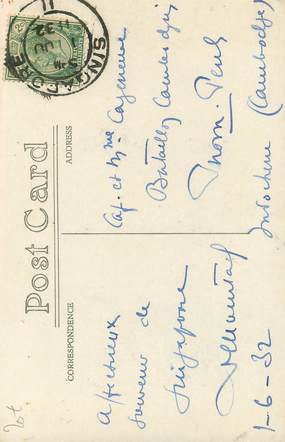 Post Card
CORRESPONDENCE
ADDRESS
Affectueux
souvenir de
Singapore
1-6-32
Cap. et Mme
Bataillon Cambodgien
Pnom-Penh
Indochine (Cambodge)
SINGAPORE